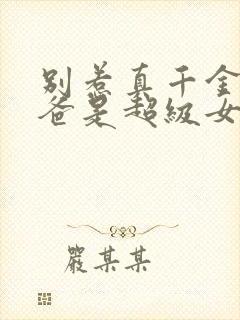 别惹真千金
爸是超级女
嚴某某